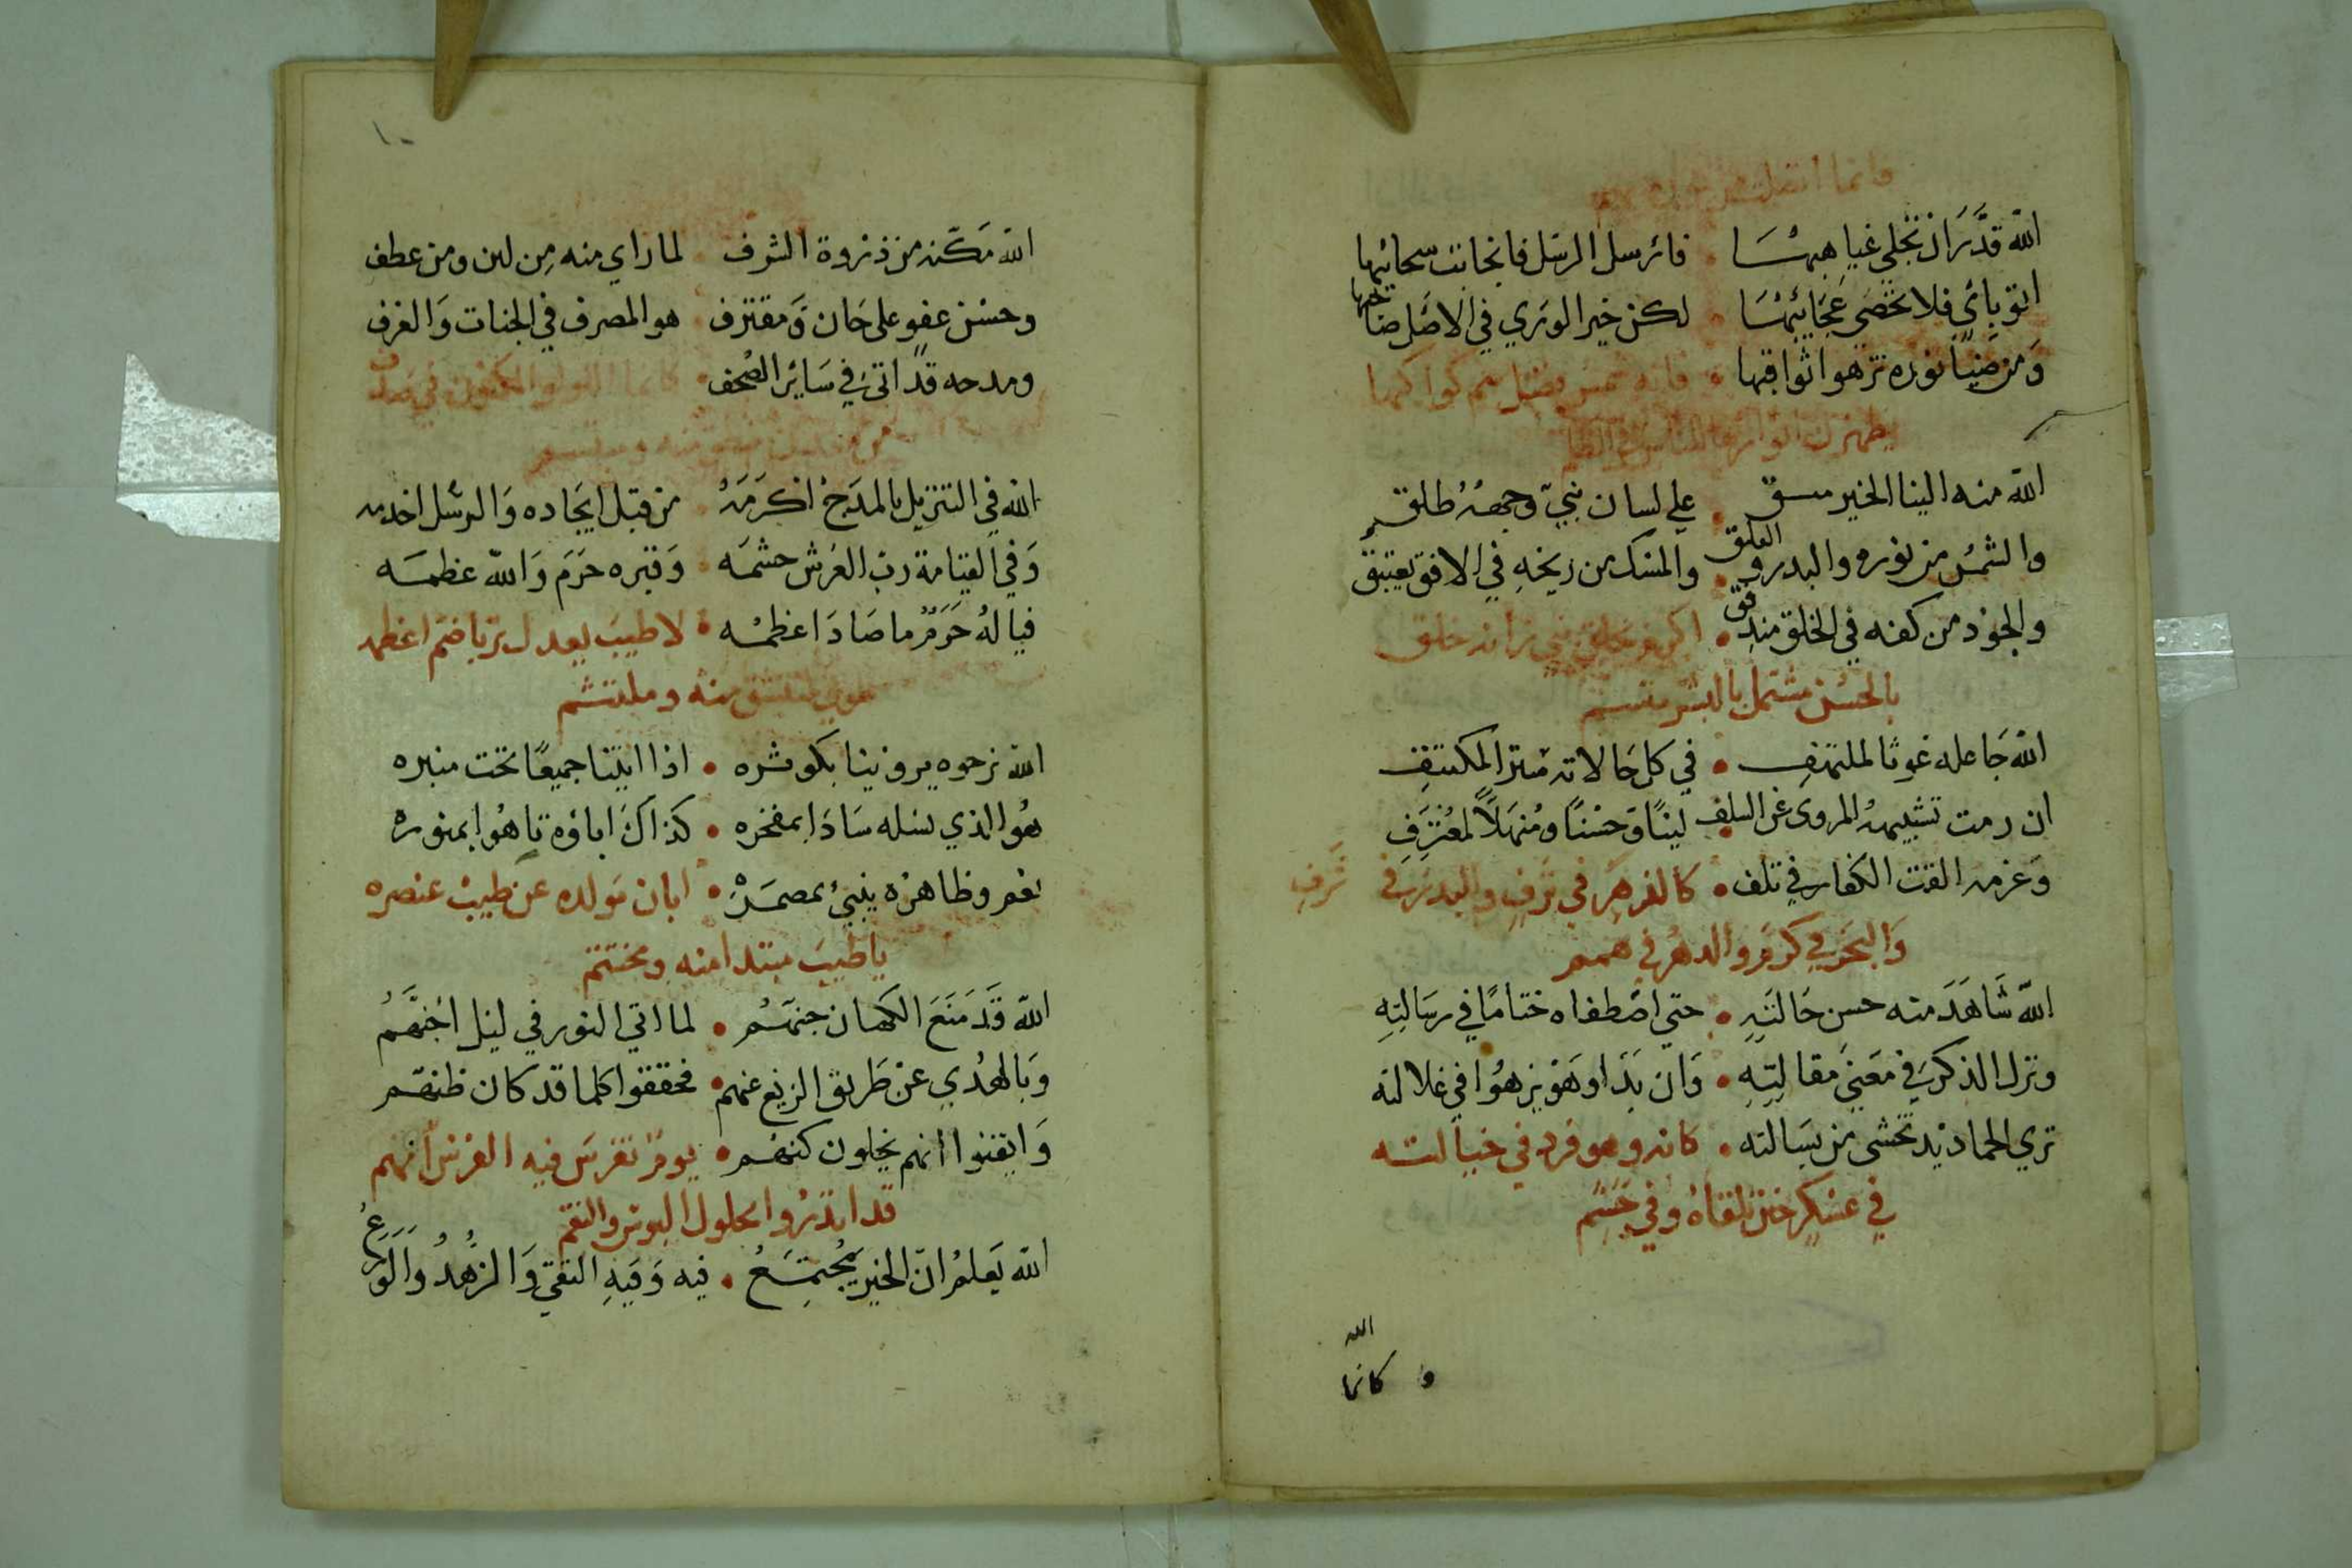 فانما اتصلت من نوره بهم
الله قدَّرَ ان تنجلي غياهبهَا • فارسل الرسْل فانجابت سحائبها
اتو بآيٍ فلا تحصَى عَجَائِبُهَا • لكن خير الوري في الاصَل صَاحبها
وَمن ضيَاً نوره تزهوا ثواقبها • فانه شمس فضل هم كواكبها
يظهرن انوارها للناس في الظلم
الله منه الينا الخير مستبق • علي لسان نبيّ وجههُ طلق
والشمسُ من نوره والبدر والفلق • والمسك من ريحهِ في الافق يعتبق
والجوُد من كفه في الخلق مندفق • اكرم بخلق نبي زانه خلق
بالحسُن مشتمل بالبشر متسم
الله جَاعله غوثا لملتهفِ • في كل حَالاته ستر المكتنِفِ
ان رمت تشبيههُ المروى عَن السلف • لينًا وَحسْنًا ومُنهَلاً لمعُترَفِ
وَعزمه القت الكفار في تلف • كالزهرِ في تَرفٍ والبدرَ في شَرفِ
وَالبَحَر في كرمٍ والدهْرِ في هممِ
الله شَاهَدَ منه حسن حَالتَهِ • حتي اصْطفاه ختامًا في رسَالتِهِ
ونزل الذكر في معَنَى مَقالتِهِ • وَان بَدَا وهَوْ يزهُوا في غلالته
تري الجماد ند تخشى من بسَالته • كانه وهو فرد في جلالته
في عسْكرٍ حين تلقاهُ وفي حَشَمِ
الله
و كانما
١٠
الله مَكَّنه من ذروة الشرف • لما راي منه مِن لين ومن عطفِ
وحسْن عفوٍ على جَان وَمقترف • هو المصرف في الجنات وَالغرف
ومدحه قد اتى في سَائر الصُحف • كانما اللولو المكنون في صدف
من معدني منطق منه ومبتسم
الله في التنزيل بالمدَح اكرَمَهُ • من قبل ايجَاده وَالرسْل اخدمه
وَفي القيَامة ربّ العَرش حشمَه • وَقبره حَرَم وَالله عظمَه
فياله حَرَمٌ ما صَادَ اعظمُه • لا طيبَ يعدل تربا ضم اعظمه
طوبي لمنتشق منه وملتثم
الله نرجوه يروينا بكوثره • اذا اتينا جميعًا تحت منبره
هُو الذي نسَله سَادَا بمفخره • كذاكَ اباؤه تاهُوا بمنوره
نعم وظاهرْه ينبئ بمصمَرهْ • ابان مَولده عن طيبْ عنصره
يا طيبَ مبتدا منه ومختتم
الله قَدَ مَنَعَ الكَهان جنهَّم • لما اتي النور في ليل اجَنَّهُم
وَبالهُدي عن طَريق الزيغ عنهم • فحققوا كلما قد كان ظنهم
وَايقنوا انهم يخلون كنهُم • يومٌ تفرسَ فيه الفرْس انهم
قد انذرُوا بحلول البوس والنقم
الله يَعلمُ انّ الخير يجُتمَعُ • فيه وَفيهِ التقي وَالزُّهدُ وَالوَرَعُ